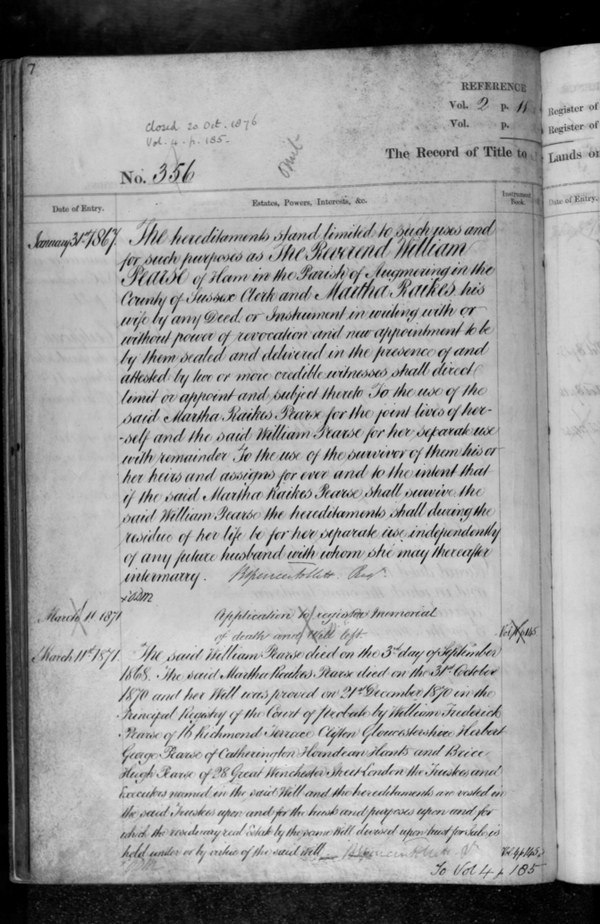 7
REFERENCE
Vol. 2 p. 11
Vol. p.
Closed 20 Oct. 1876
Vol. 4. p. 185.
The Record of Title to
No. 356
Date of Entry.
Estates, Powers, Interests, &c.
Instrument Book.
January 31st 1867.
The hereditaments stand limited to such uses and
for such purposes as The Reverend William
Pearse of Ham in the Parish of Angmering in the
County of Sussex Clerk and Martha Raikes his
wife by any Deed or Instrument in writing with or
without power of revocation and new appointment to be
by them sealed and delivered in the presence of and
attested by two or more credible witnesses shall direct
limit or appoint and subject thereto To the use of the
said Martha Raikes Pearse for the joint lives of her-
-self and the said William Pearse for her separate use
with remainder To the use of the survivor of them his or
her heirs and assigns for ever and to the intent that
if the said Martha Raikes Pearse shall survive the
said William Pearse the hereditaments shall during the
residue of her life be for her separate use independently
of any future husband with whom she may thereafter
intermarry.
March 11 1871
Application to register Memorial
of death and Will left
March 11th 1871.
The said William Pearse died on the 3rd day of September
1868. The said Martha Raikes Pearse died on the 31st October
1870 and her Will was proved on 21st December 1870 in the
Principal Registry of the Court of Probate by William Frederick
Pearse of 16 Richmond Terrace Clifton Gloucestershire Herbert
George Pearse of Catherington Horndean Hants and Brice
Hugh Pearse of 28 Great Winchester Street London the Trustees and
Executors named in the said Will and the hereditaments are vested in
the said Trustees upon and for the trusts and purposes upon and for
which the residuary real Estate by the same Will devised upon trust for sale is
held under or by virtue of the said Will
Vol 4 p 145
To Vol 4 p 185
Register of
Register of
Lands or
Date of Entry.